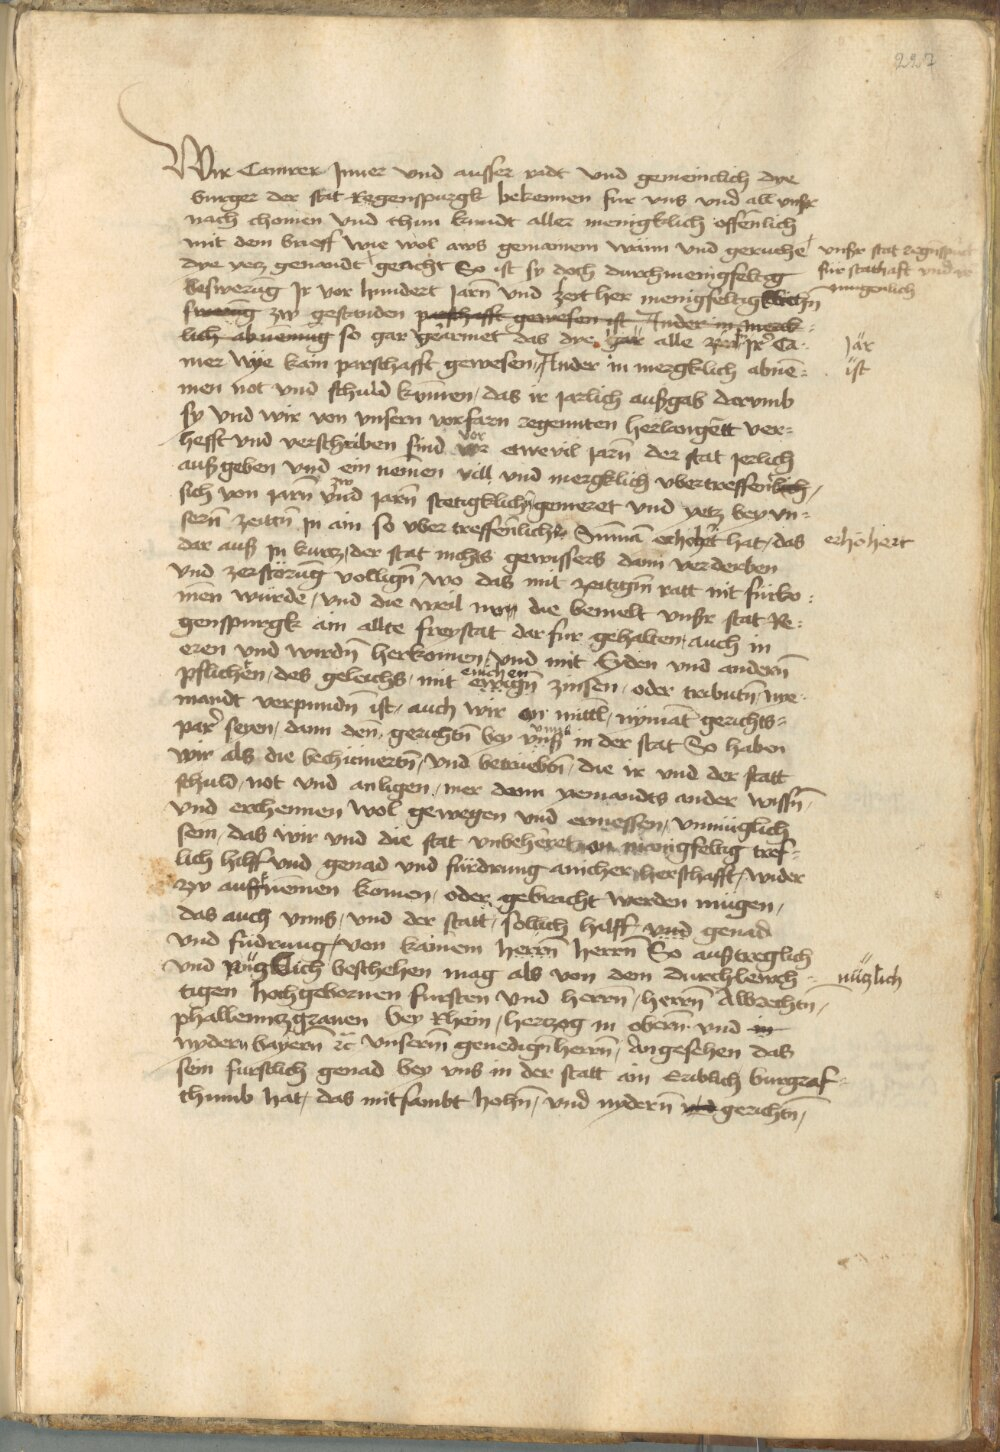 227
Wir Camrer Inner und ausser radt und gemeinclich dye
burger der stat Regenspurgk bekennen fur uns und all unsr
nach chomen Und thun kundt aller menigklich offenlich
mit dem brieff Wie wol aws gemainem wann und geruche
unsr stat regnspurg
fur stathaft und
mugenlich
dye yetz genandt geacht So ist sy doch durch menigfeltig
beswerung Ir vor hundert Jarn und zeit her menigfeltigklichn
zw gestanden parschafft gewesen ist Ander in merck=
lich abnemung so gar geärmet das dye gar alle zeit Ir Ca=
Jär
mer Wye kain parschafft gewesen, Ander in mergklich abne=
ist
men not und schuld kumen, das ir jarlich außgab darumb
sy und wir von unsern vorfarn regennten herlangett ver=
hefft und verschriben sind vor etwevil Jarn der stat jerlich
vor
außgeben und ein nemen vill und mergklich ubertreffenlich,
sich von jarn und jarn stetigklich gemeret und yetz bey un=
zw
sern zeittn In ain so uber treffenlich Summa erhohet hat, das
erhöhert
dar auß In kurtz, der stat nichts gewissers dann verderben
und zerstörung vollign, wo das mit zeitign ratt nit fürko=
men würde, und die weil nun die bemelt unsr stat Re=
genspurgk ain allte freystat dar fur gehalten, auch in
eren und wirdn herkomen, und mit Eyden und andern
pflichen, des geleichs, mit ewign zinsen, oder tributn, nye=
einichen
mandt verpundn ist, auch wir on mittl, nymat gerichts=
par seyen, dann den gerichtn bey unß in der stat So haben
wir als die bechümertn, und betruebtn, die ir und der statt
schuld, not und anligen, mer dann yemandts ander wissn,
und erchennen wol gewegen und ermessen, unmüglich
sein, das wir und die stat unbeheret on menigfeltig tref=
lich hilff und genad und fürdrung ainicher herschafft, wider
zw auffnemen komen, oder gebracht werden mügen,
das auch unns, und der statt, sollich hilff und genad
und füdrung, von kainem herrn herrn So außtreglich
und nugklich beschehen mag als von dem durchlewch=
nützlich
tigen hochgebornen fursten und herrn, herrn Albrechtn,
phallenntzgraven bey Rhein, hertzog in obern und in
nydern bayern etc unserm genedign herrn, angesehen das
sein furstlich genad bey uns in der statt ain Erblich burgraf=
thumb hat, das mitsambt hohn, und nydern und gerichtn,